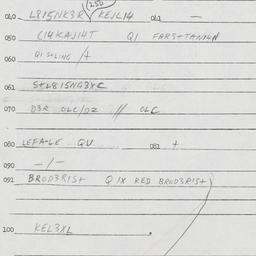 250
040 L815NK3R KEJL14 042 —
050 C14KAJ14T Q1 FARS+TAN14N
060 Q1 S+LING /+
061 S+W815NG3XC
070 D3R OLC/02 // OLC
080 LEFA+LE QU 082 +
090 -/-
091 BROD3R1S+ Q 1X RED BROD3R1S+
100 KEL3XL